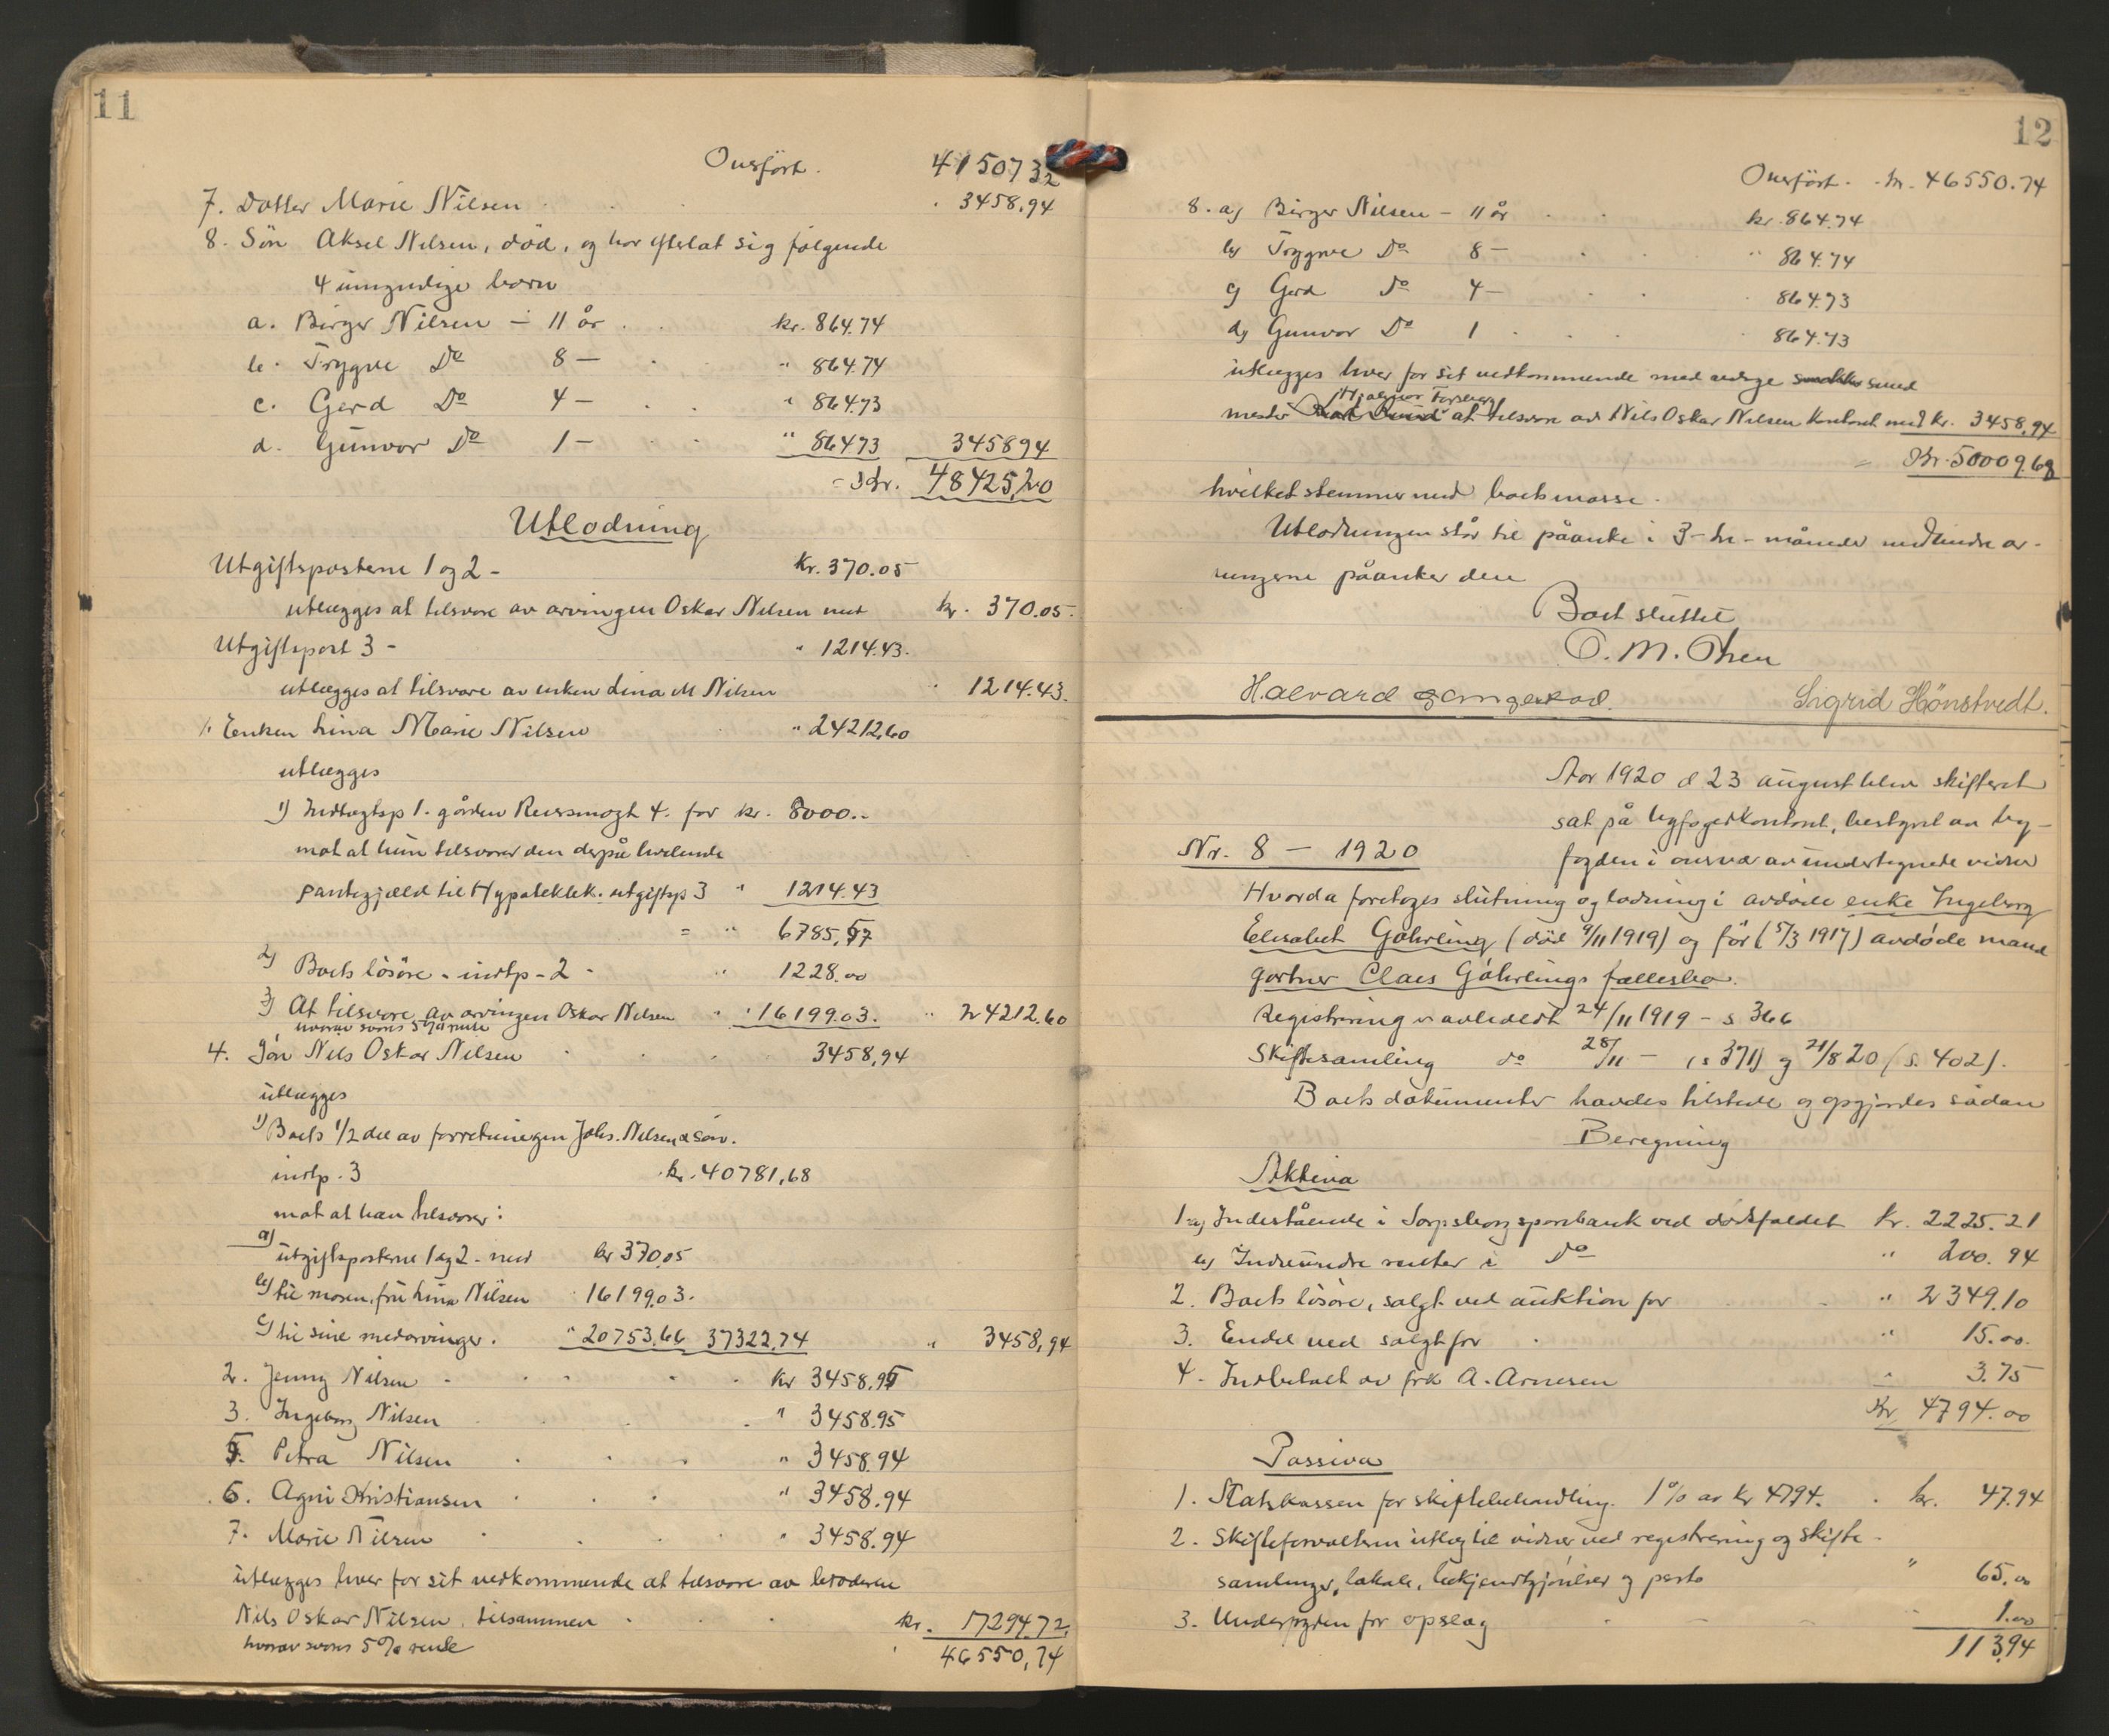 11
Overført. 41507 32
7. Datter Marie Nilsen 3458,94
8. Søn Aksel Nilsen, død, og har efterlat sig følgende
4 umyndige barn
a. Birger Nilsen – 11 år kr. 864.74
b. Trygve Do 8 – " 864.74
c. Gerd Do 4 – " 864.73
d. Gunvor Do 1 – " 86473 345894
= Kr. 48425,20
Utlodning
Utgiftsposterne 1 og 2 – Kr. 370.05
utlægges at tilsvare av arvingen Oskar Nilsen med kr. 370.05.
Utgiftspost 3 – " 1214.43.
utlægges at tilsvare av enken Lina M Nilsen " 1214.43.
1. Enken Lina Marie Nilsen " 24212,60
utlægges
1) Indtægtsp 1. gården 4. for kr. 8000.-
mot at hun tilsvarer den derpå heftende
pantegjæld til Hypotekbk. utgiftsp 3 " 1214.43
= " 6785,57
2) Boets løsøre – indtp – 2 – " 1228.00
3) At tilsvare av arvingen Oskar Nilsen " 16199.03. " 24212.60
hvorav svares 5% rente
4. Søn Nils Oskar Nilsen 3458,94
utlægges
1) Boets 1/2 del av forretningen Johs. Nilsen & søn.
indtp. 3 kr. 40781,68
mot at han tilsvarer:
a) utgiftsposterne 1 og 2 – med kr 370.05
b) til moren, fru Lina Nilsen 16199.03.
c) til sine medarvinger. " 20753.66 37322,74 " 3458,94
2. Jenny Nilsen kr 3458.95
3. Ingeborg Nilsen " 3458.95
5. Petra Nilsen " 3458.94
6. Agni Kristiansen " 3458.94
7. Marie Nilsen " 3458.94
utlægges hver for sit vedkommende at tilsvare av broderen
Nils Oskar Nilsen, tilsammen kr. 17294.72.
hvorav svares 5% rente 46550,74
12
Overført. kr. 46550.74
8. a) Birger Nilsen – 11 år kr. 864.74
b) Trygve Do 8 – " 864.74
c) Gerd Do 4 – 864.73
d) Gunvor Do 1 864.73
utlægges hver for sit vedkommende med værge smed
Hjalmar Forsberg
mester at tilsvare av Nils Oskar Nilsen kontant med kr. 3458,94
= Kr. 50009.68
hvilket stemmer med boets masse.
Utlodningen står til påanke i 3-tre-måneder medmindre ar-
vingerne påanker den
Boet sluttet
O. M. Thven
Halvard Sigrid Hønstvedt.
Aar 1920 d 23 august blev skifteret
sat på byfogedkontoret, bestyret av by-
Nr. 8 – 1920 fogden i overvær av undertegnede vidner
Hvorda foretoges slutning og lodning i avdøde enke Ingeborg
Elisabet Gøhrling (død 9/11 1919) og før (5/3 1917) avdøde mand
gartner Claes Gøhrlings fællesbo.
Registrering avholdt 24/11 1919 – s 366
Skiftesamling do 28/11 – (s 371) og 21/8 20 (s. 402).
Boets dokumenter havdes tilstede og opgjordes sådan
Beregning
Aktiva
1 a) Indestående i Sarpsborg sparebank ved dødsfaldet Kr. 2225.21
b) Indvundne renter i Do " 200.94
2. Boets løsøre, solgt ved auktion for " 2349.10
3. Endel ved solgt for " 15.00.
4. Indbetalt av frk A. Arnesen " 3.75
Kr 4794.00
Passiva
1. Statskassen for skiftebehandling. 1% av kr 4794. kr. 47.94
2. Skifteforvalteren utlæg til vidner ved registrering og skifte-
samlinger, lokale, bekjendtgjørelser og porto " 65.00
3. Underfogden for opslag 1.00
113,94